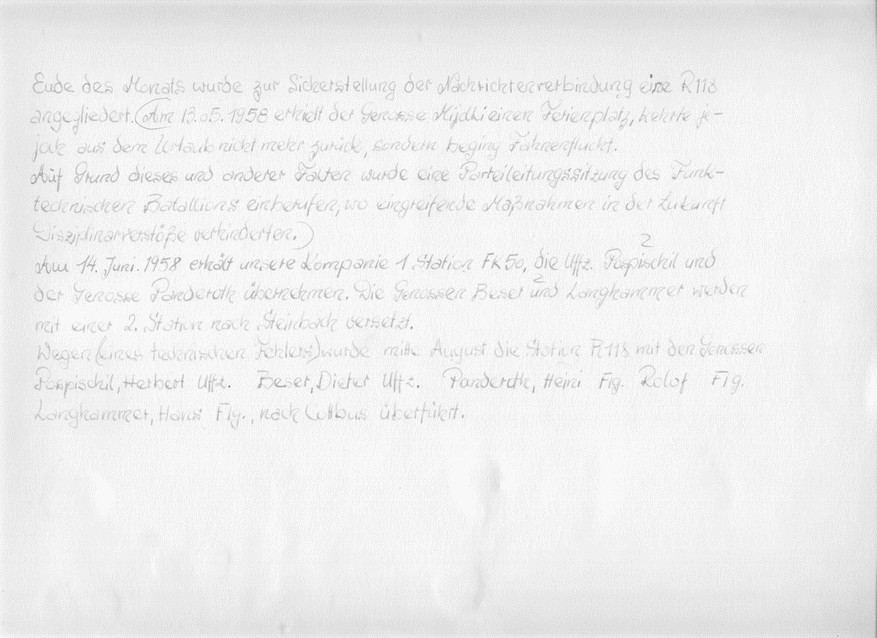 Ende des Monats wurde zur Sicherstellung der Nachrichtenverbindung eine R118
angegliedert. (Am 13.05.1958 erhielt der Genosse einen Ferienplatz, kehrte je-
joch aus dem Urlaub nicht mehr zurück, sondern beging Fahnenflucht.
Auf Grund dieses und anderer Fakten wurde eine Parteileitungssitzung des Funk-
technischen Batallions einberufen, wo eingreifende Maßnahmen in der Zukunft
Disziplinarverstöße verhinderten.)
2
Am 14. Juni. 1958 erhält unsere Kompanie 1 Station FK 50, die Uffz. Pospischil und
der Genosse Panderoth übernehmen. Die Genossen Beser und Langhammer werden
2
mit einer 2. Station nach Steinbach versetzt.
Wegen (eines technischen Fehlers) wurde mitte August die Station R118 mit den Genossen
Pospischil, Herbert Uffz. Beser, Dieter Uffz. Panderoth, Heini Flg. Rolof Flg.
Langhammer, Hans Flg., nach Cottbus überführt.